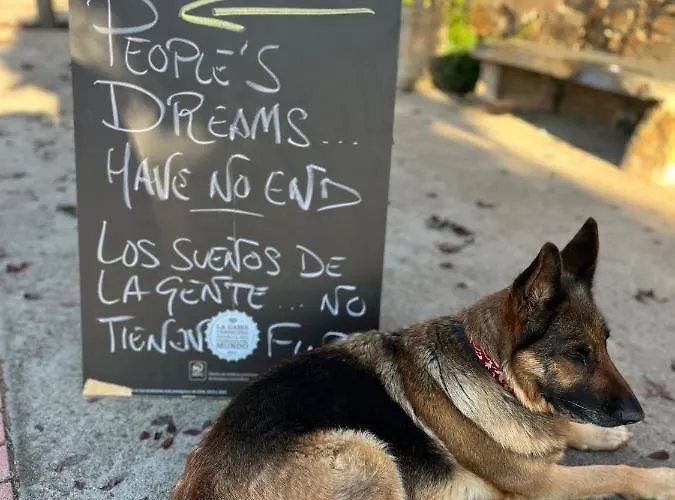 PEOPLE'S
DREAMS...
HAVE NO END
LOS SUEÑOS DE
LA GENTE... NO
TIENEN FI
LA GAMA
MUNDO